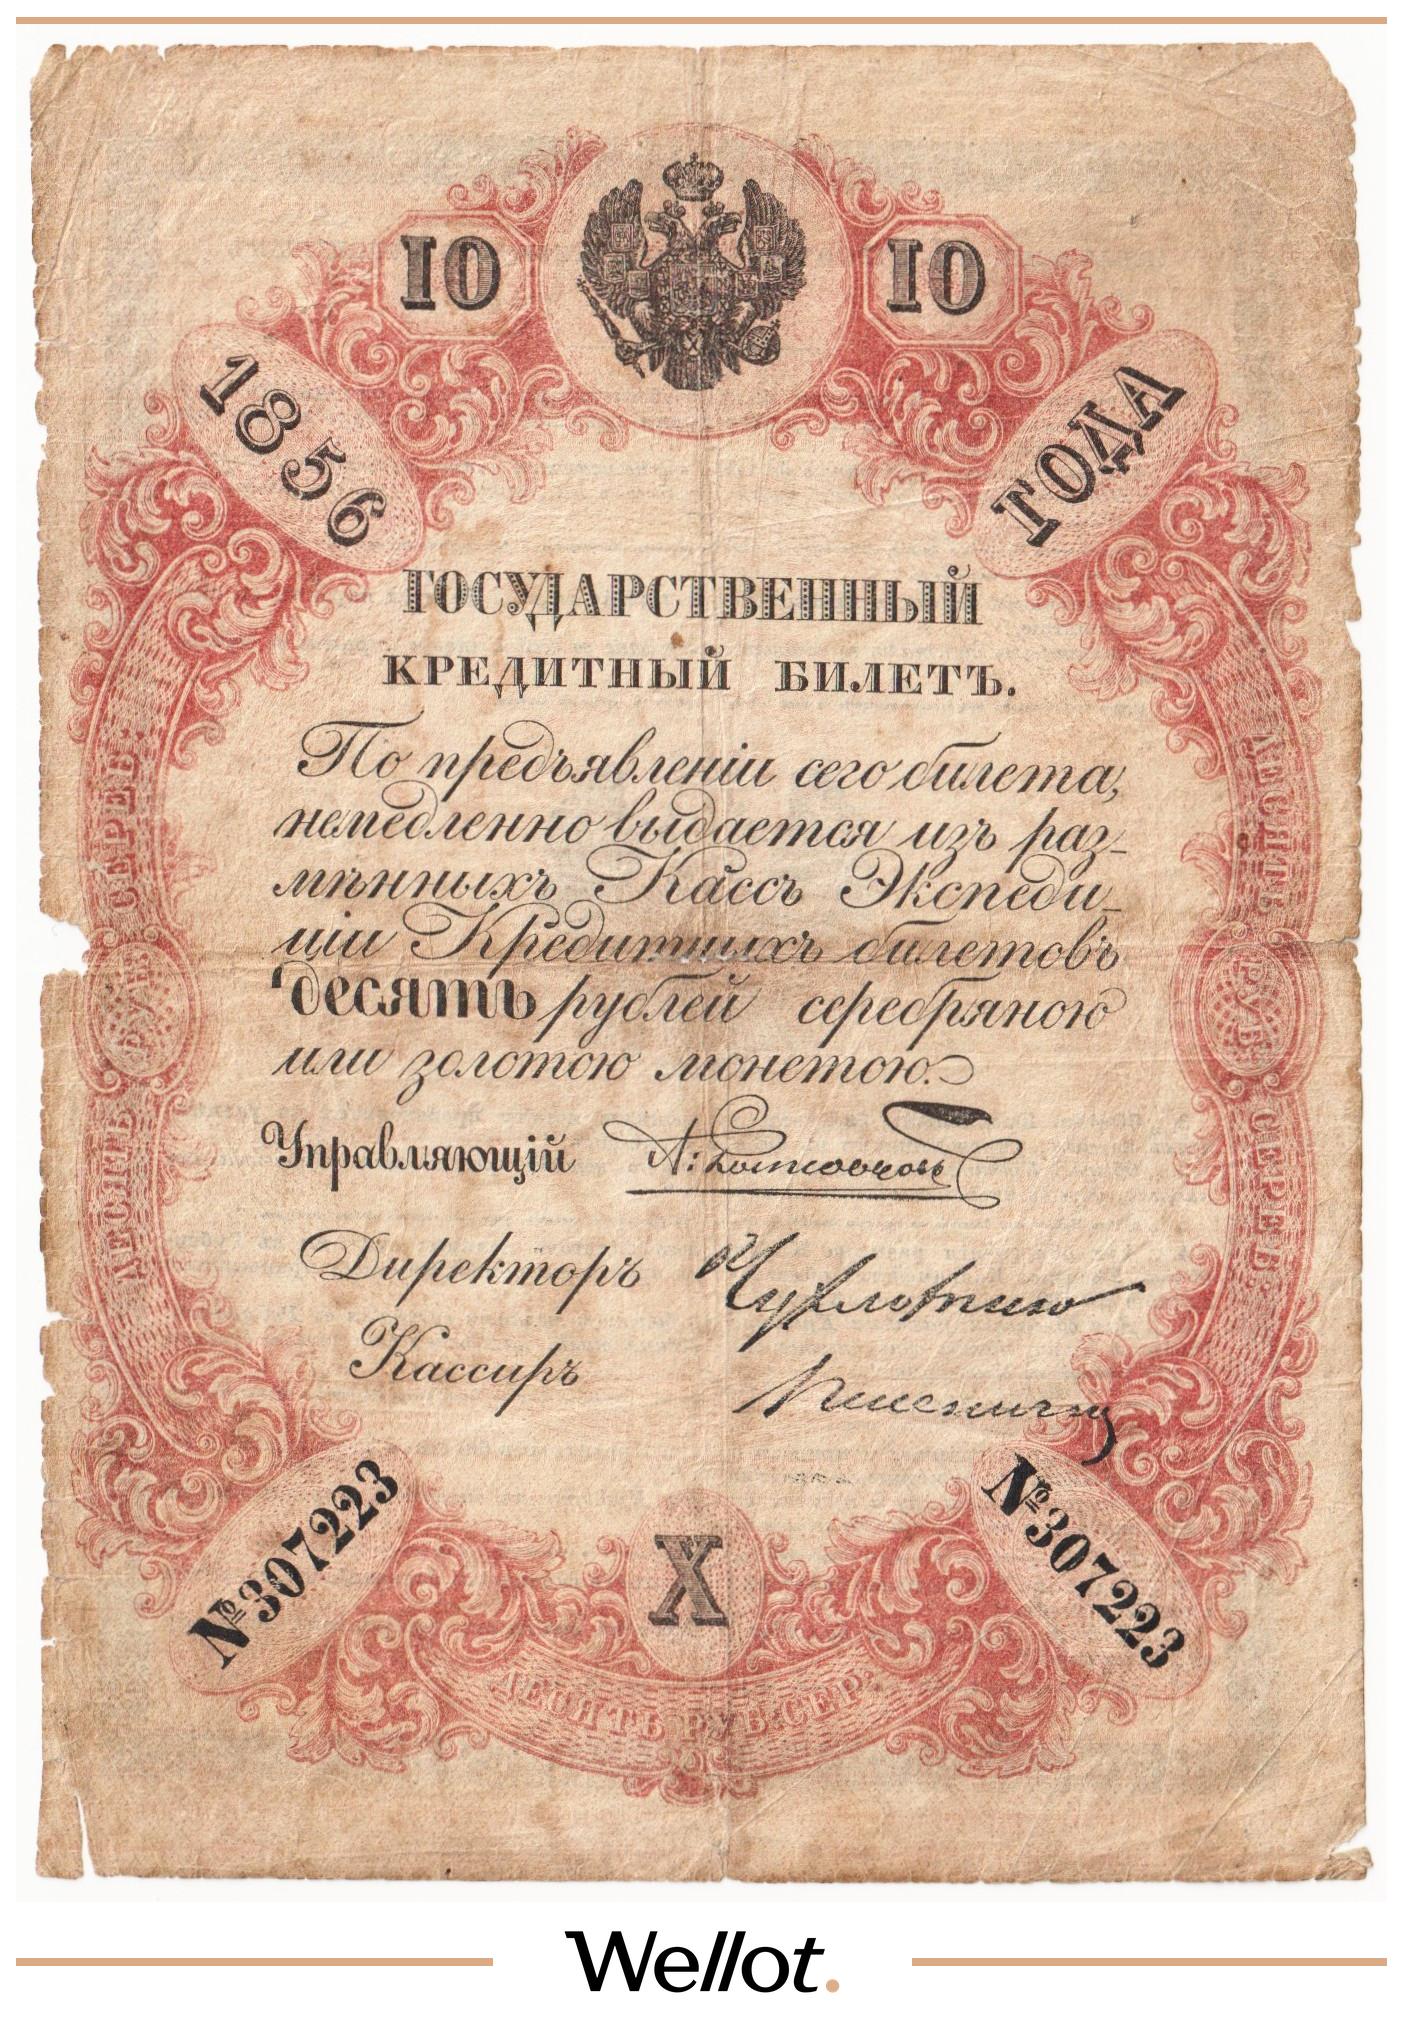 10 10
1856 ГОДА
ГОСУДАРСТВЕННЫЙ
КРЕДИТНЫЙ БИЛЕТЪ.
По предъявленіи сего билета,
немедленно выдается изъ раз-
мѣнныхъ Кассъ Экспеди-
ціи Кредитныхъ билетовъ
десять рублей серебряною
или золотою монетою.
Управляющій
Директоръ
Кассиръ
ДЕСЯТЬ РУБ: СЕРЕБ:
ДЕСЯТЬ РУБ: СЕРЕБ:
№307223 №307223
X
ДЕСЯТЬ РУБ: СЕР:
Wellot.